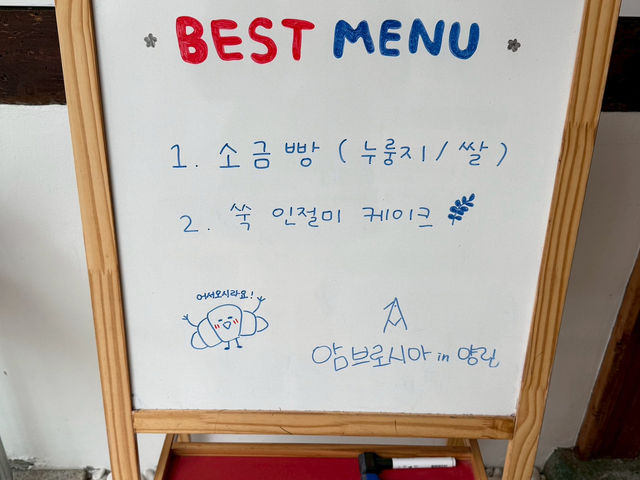 BEST MENU
1. 소금빵 (누룽지/쌀)
2. 쑥 인절미 케이크
어서오시라요!
암브로시아 in 양림